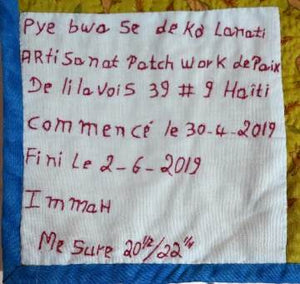 Pye bwa se de kò Lanati
ARti Sanat Patch work de Paix
De lilavois 39 # 9 Haiti
commencé le 30-4-2019
Fini Le 2-6-2019
ImmaH
Me Sure 20 1/2/22 1/4